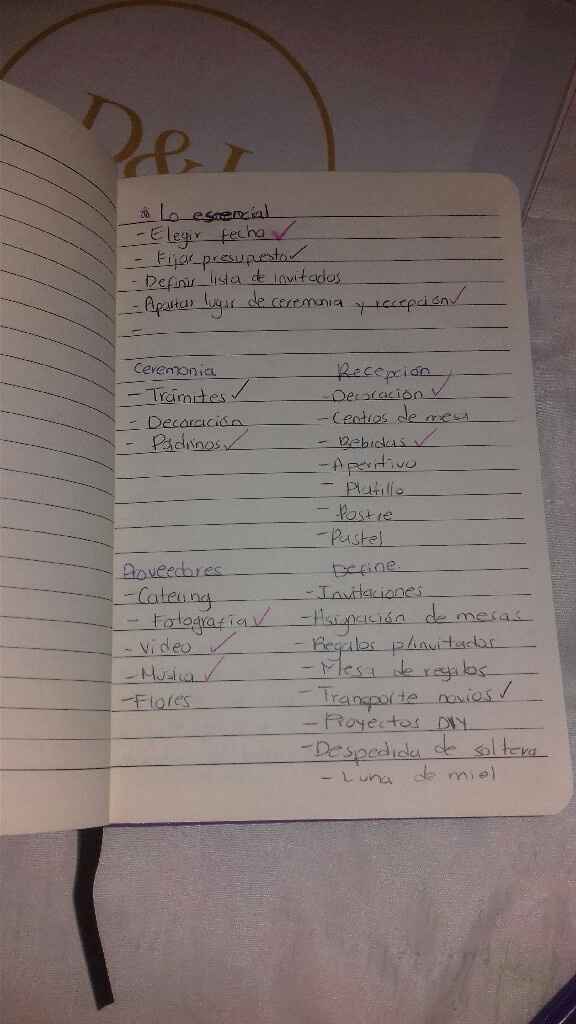 D&
* Lo esencial
- Elegir fecha ✓
- Fijar presupuesto ✓
- Definir lista de invitados
- Apartar lugar de ceremonia y recepción ✓
-
Ceremonia
- Trámites ✓
- Decoración
- Padrinos ✓
Recepción
- Decoración ✓
- Centros de mesa
- Bebidas ✓
- Aperitivo
- Platillo
- Postre
- Pastel
Proveedores
- Catering
- Fotografía ✓
- Video ✓
- Música ✓
- Flores
Define
- Invitaciones
- Asignación de mesas
- Regalos p/invitados
- Mesa de regalos
- Transporte novios ✓
- Proyectos DIY
- Despedida de soltera
- Luna de miel